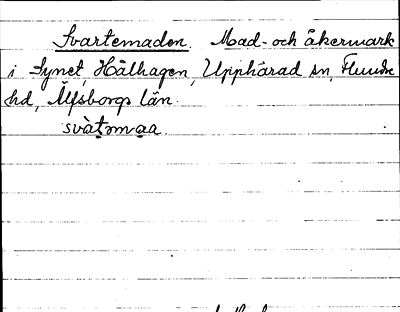 Svartemaden. Mad- och åkermark
i Synet, Hålhagen, Upphärad sn, Flundre
hd, Älfsborgs län.
svàtəmaa.